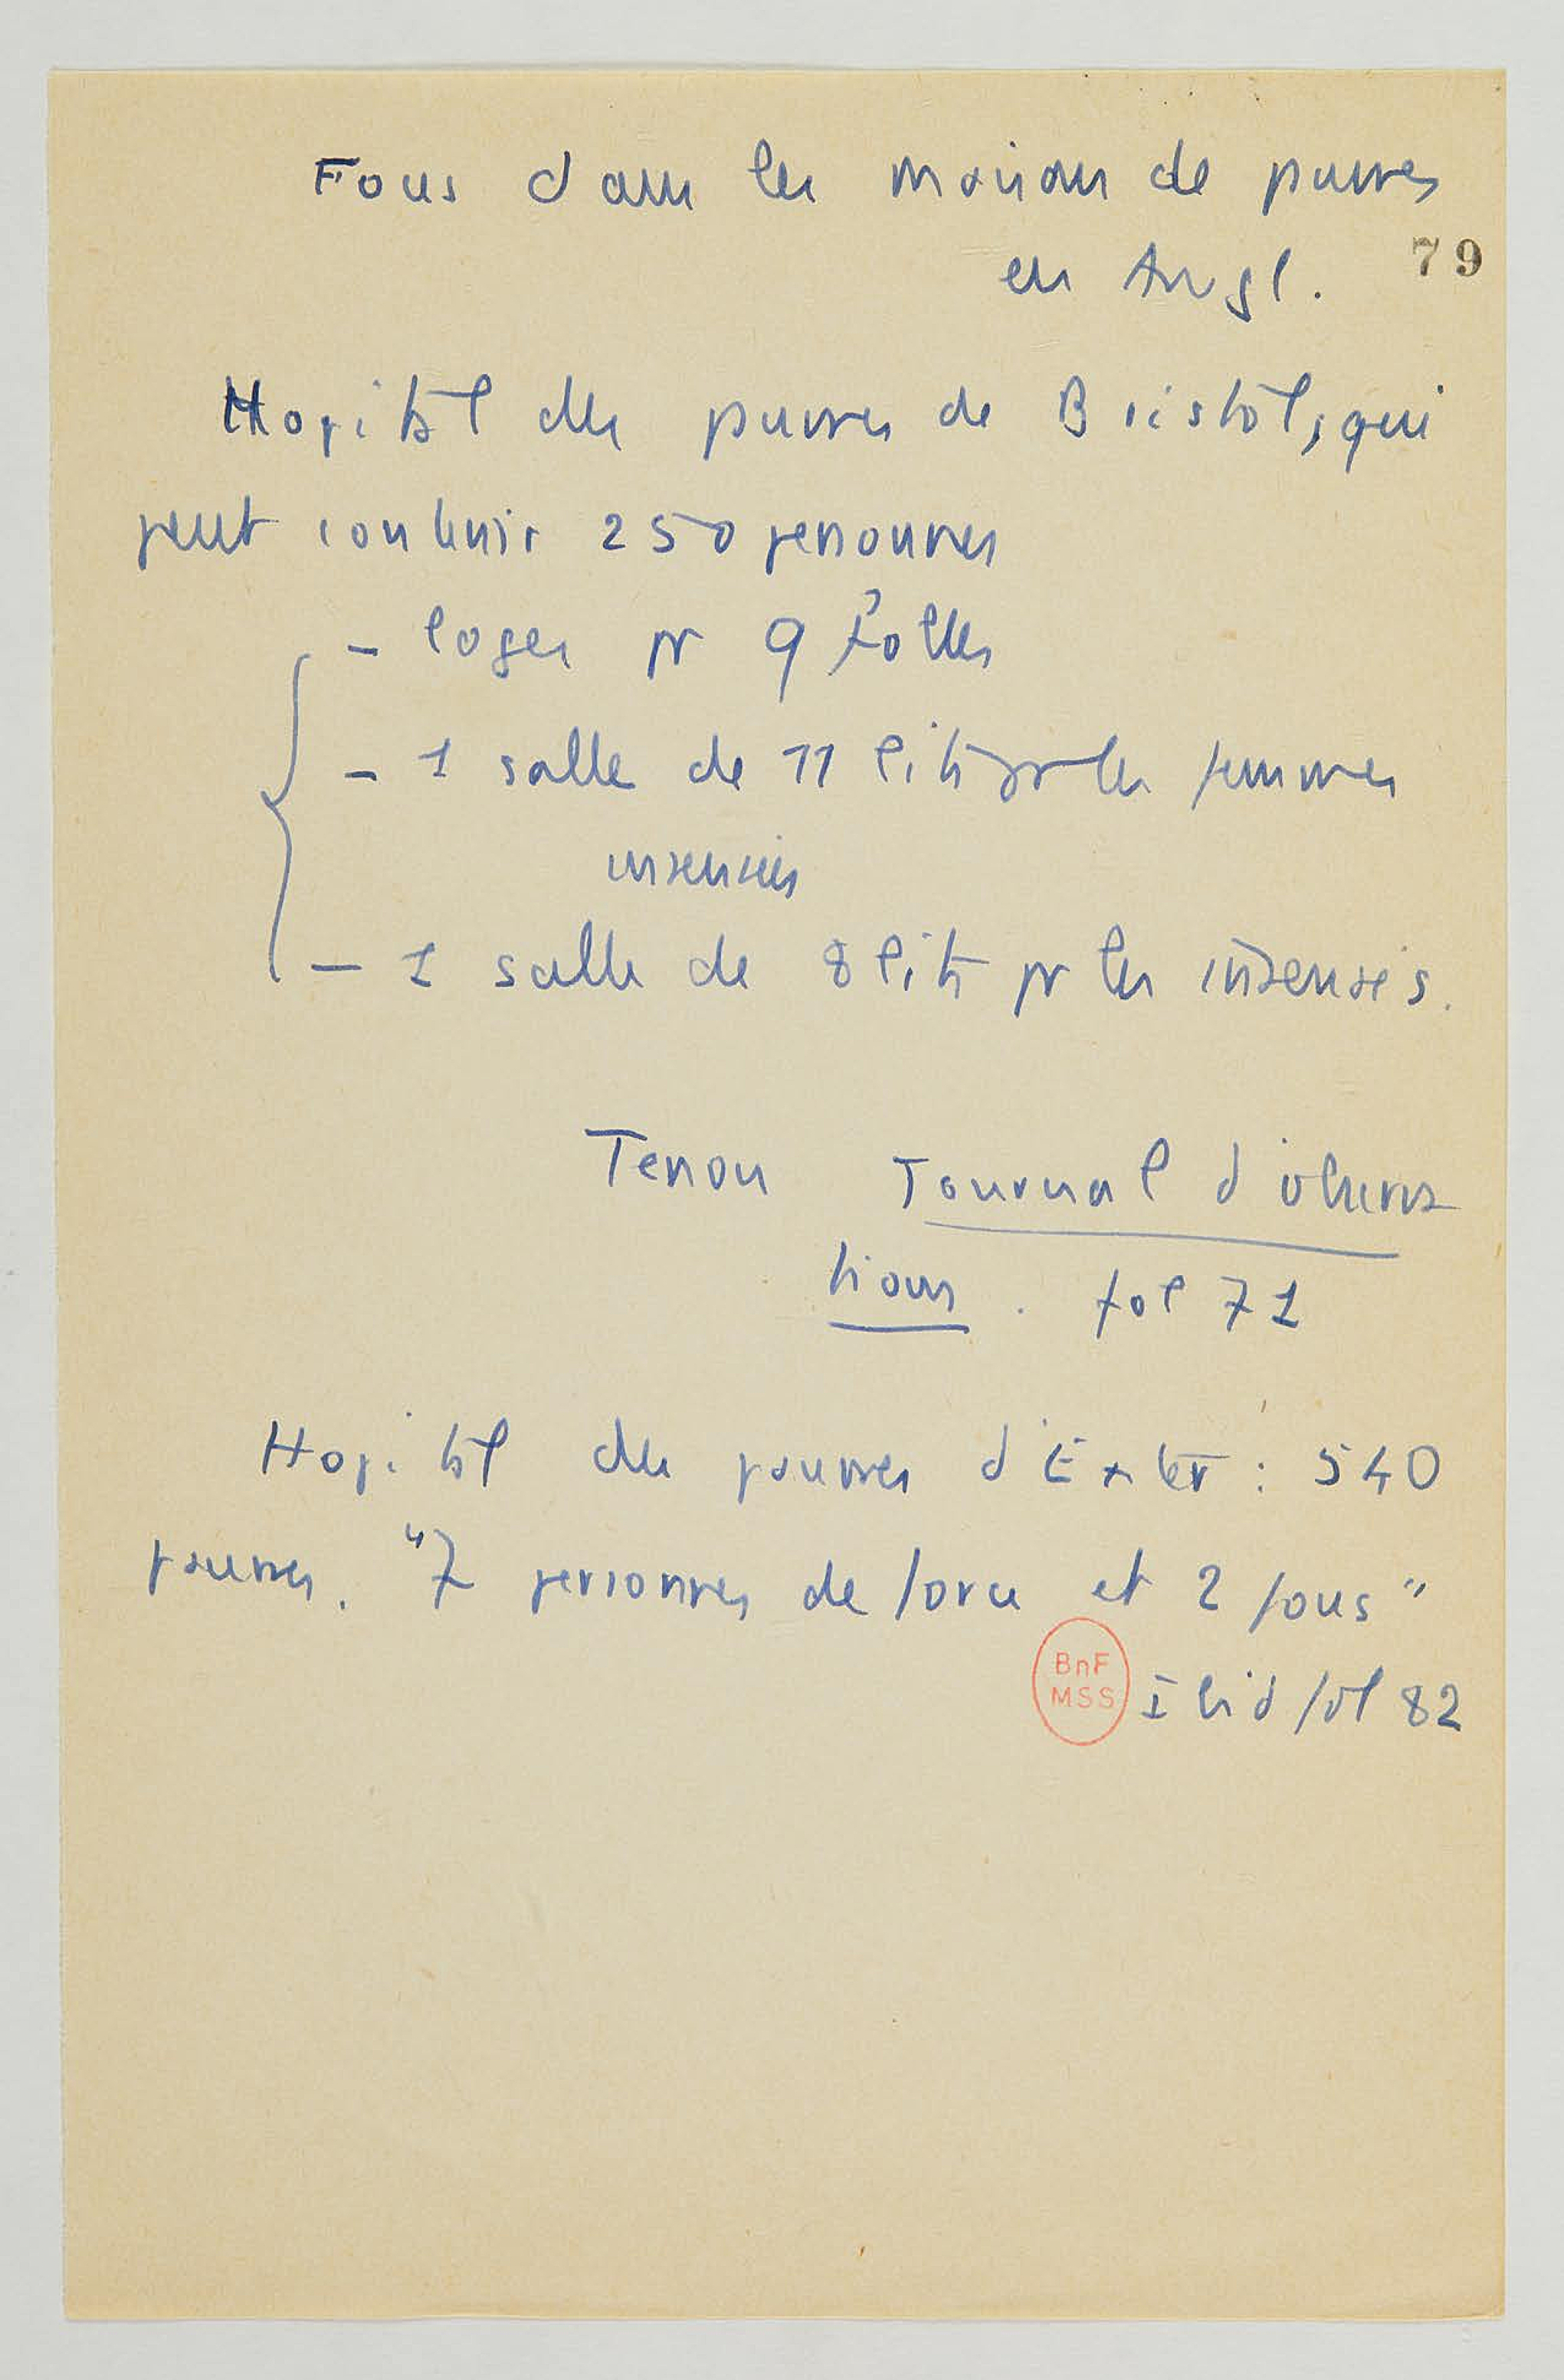 Fous dans les maisons de pauvres
en Angl.
79
Hopital des pauvres de Bristol, qui
peut contenir 250 personnes
- loges pr 9 folles
- 1 salle de 11 lits pr les femmes
insensées
- 1 salle de 8 lits pr les insensés.
Tenon Journal d'observa
tions. fol 71
Hopital des pauvres d'Exeter : 540
pauvres. "7 personnes de force et 2 fous"
BnF
MSS
Ibid fol 82